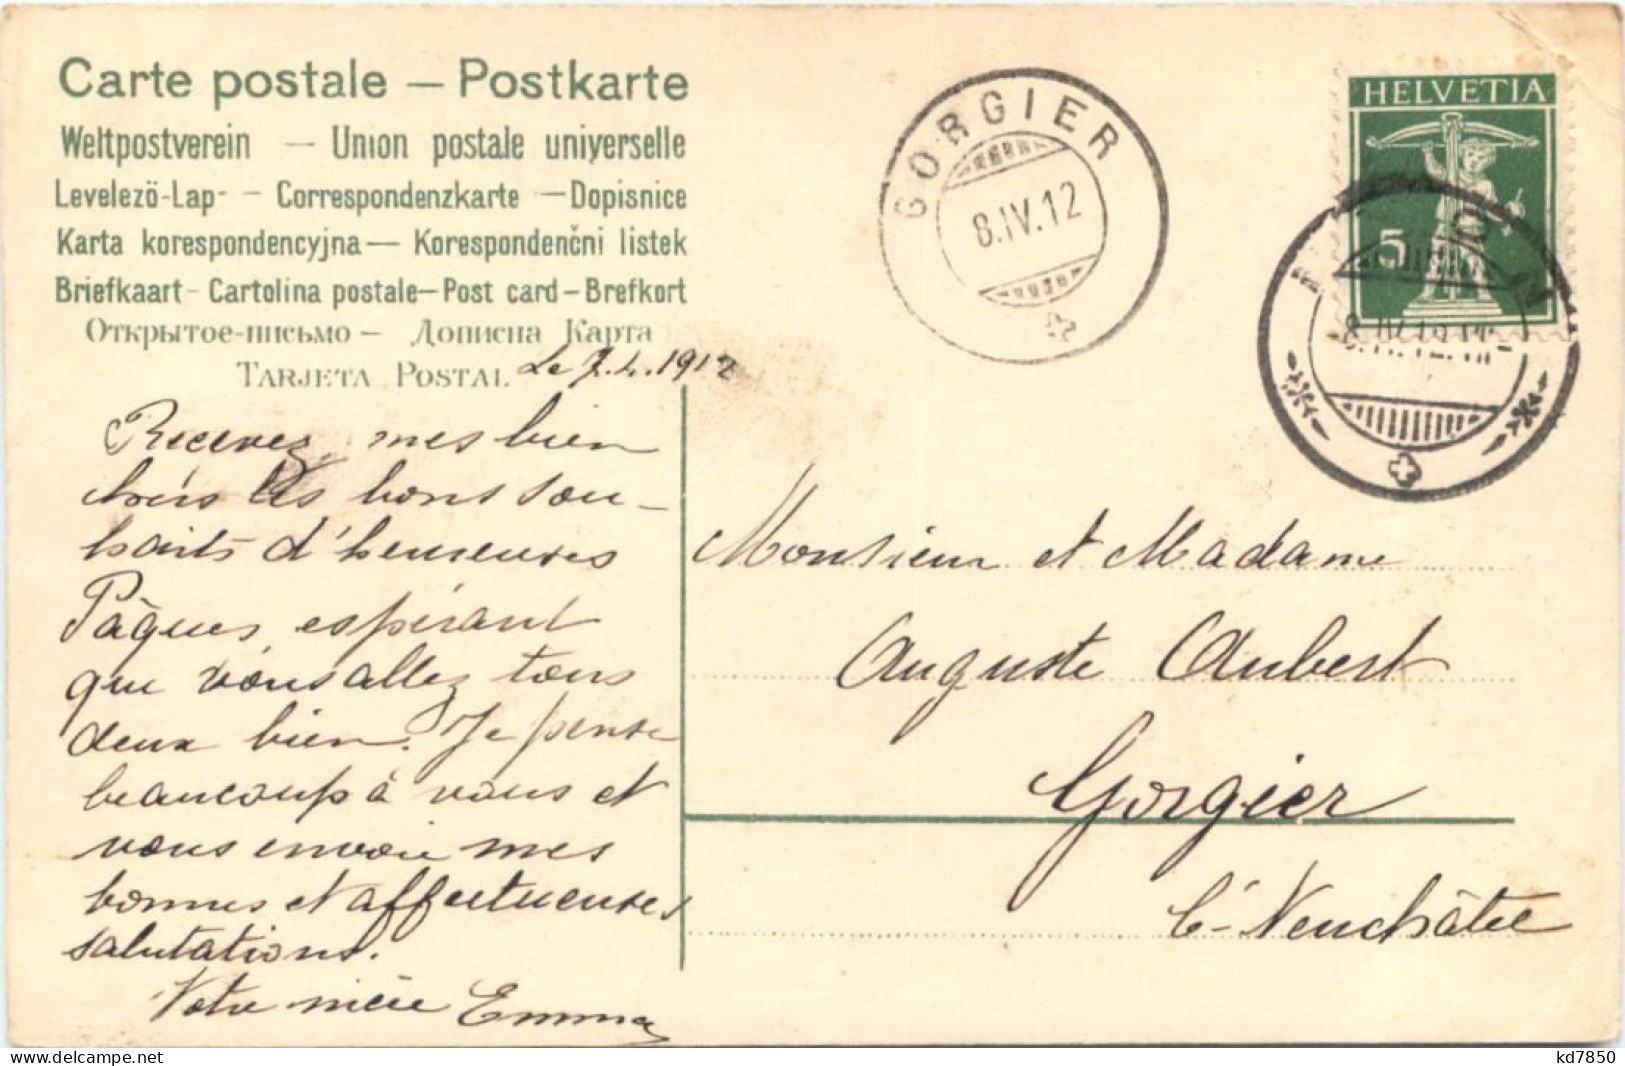 Carte postale — Postkarte
Weltpostverein — Union postale universelle
Levelezö-Lap- — Correspondenzkarte — Dopisnice
Karta korespondencyjna — Korespondenčni listek
Briefkaart - Cartolina postale — Post card — Brefkort
Открытое-письмо — Дописна Карта
TARJETA POSTAL
Le 7.4.1912
Recevez mes bien
chers les bons sou-
haits d'heureuses
Pâques, espérant
que vous allez tous
deux bien. Je pense
beaucoup à vous et
vous envoie mes
bonnes et affectueuses
salutations.
Votre nièce Emma
GORGIER
8.IV.12
HELVETIA
5
Monsieur et Madame
Auguste Aubert
Gorgier
Ct. Neuchâtel
kd7850